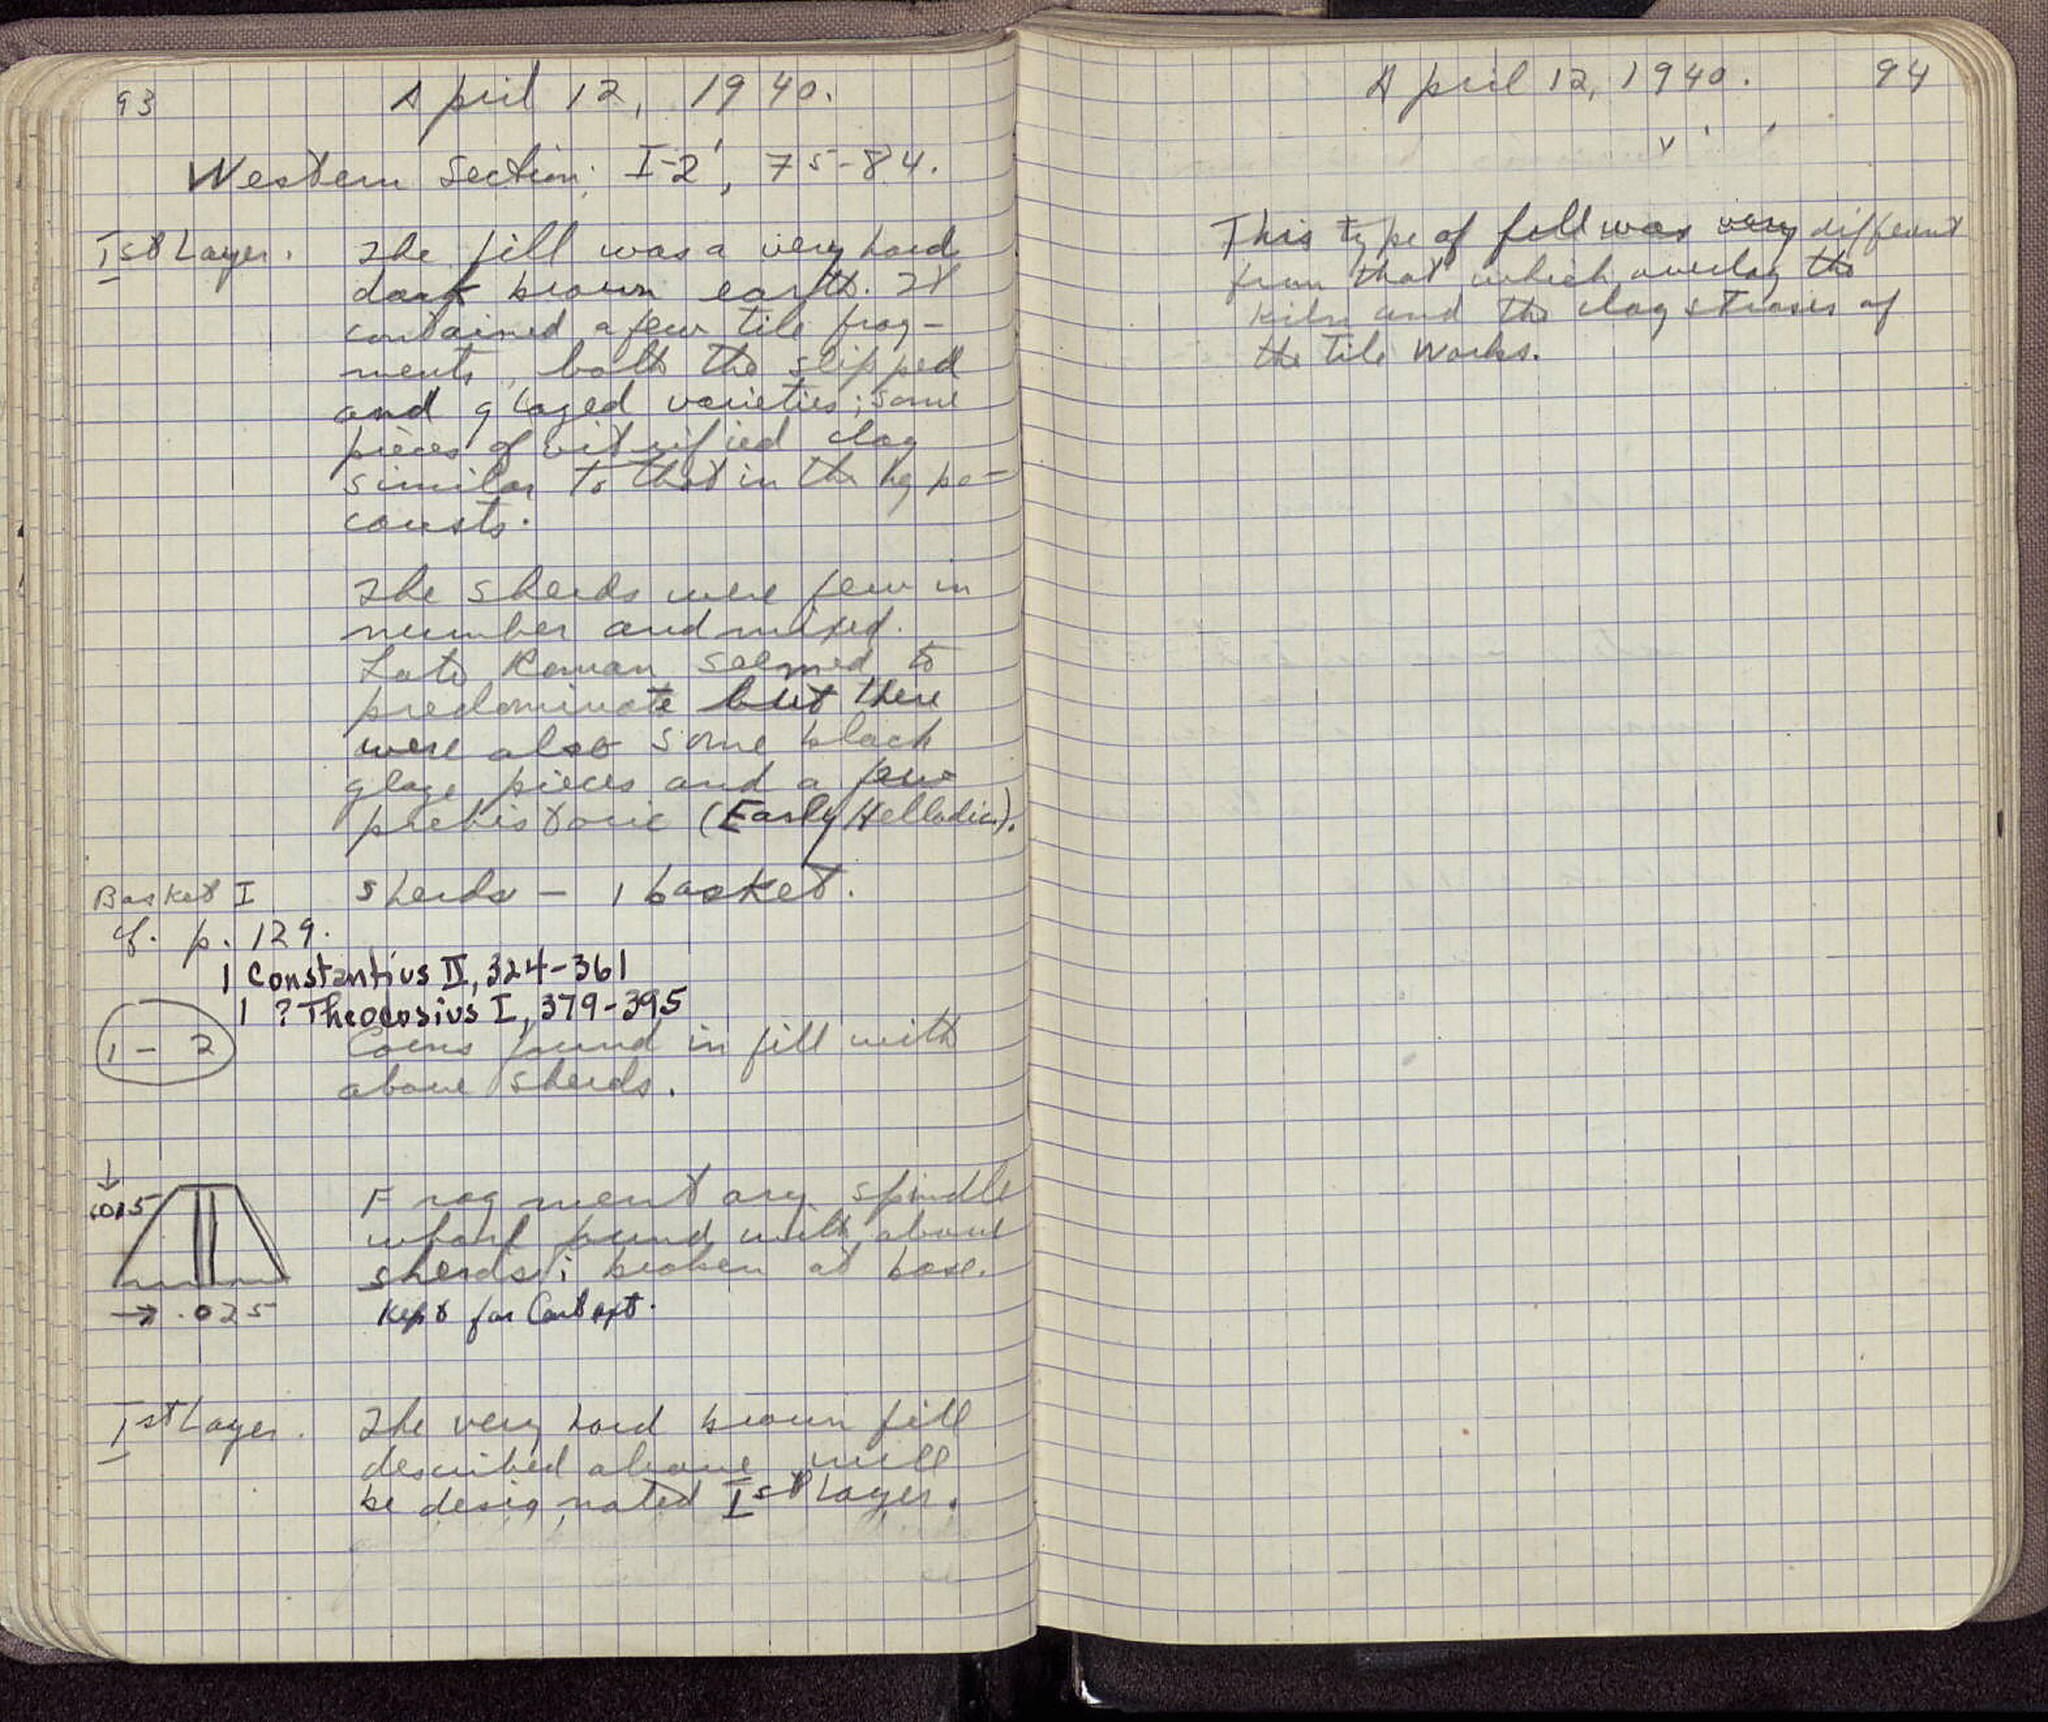 93
April 12, 1940.
Western Section; I-2', 75-84.
Ist Layer. The fill was a very hard
dark brown earth. It
contained a few tile frag-
ments, both the slipped
and glazed varieties; some
pieces of vitrified clay
similar to that in the hypo-
causts.
The sherds were few in
number and mixed.
Late Roman seemed to
predominate but there
were also some black
glaze pieces and a few
prehistoric (Early Helladic).
Basket I sherds - 1 basket.
cf. p. 129.
1 Constantius II, 324-361
1 ?Theodosius I, 379-395
1 - 2 Coins found in fill with
above sherds.
.015 Fragmentary spindle
whorl found with above
sherds; broken at base.
→ .025 Kept for Context.
Ist Layer. The very hard brown fill
described above will
be designated Ist Layer.
April 12, 1940. 94
This type of fill was very different
from that which overlay the
kiln and the clay strases of
the tile works.